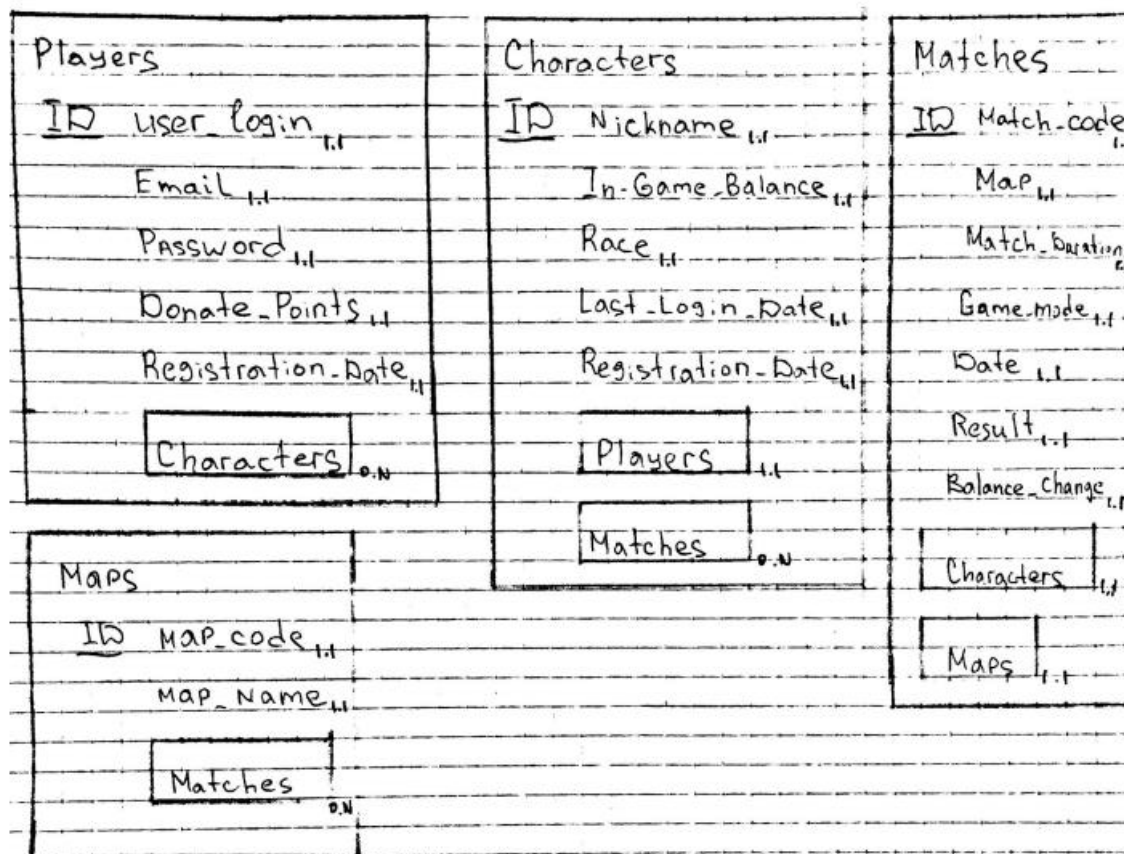 Players
ID user_login 1.1
Email 1.1
Password 1.1
Donate_Points 1.1
Registration_Date 1.1
Characters 0.N
Characters
ID Nickname 1.1
In-Game_Balance 1.1
Race 1.1
Last_Login_Date 1.1
Registration_Date 1.1
Players 1.1
Matches 0.N
Matches
ID Match_code
Map 1.1
Match_Duration
Game_mode 1.1
Date 1.1
Result 1.1
Balance_Change 1.1
Characters 1.1
Maps 1.1
Maps
ID Map_code 1.1
Map_Name 1.1
Matches 0.N